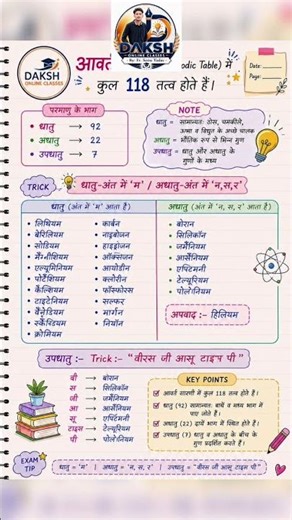 DAKSH
ONLINE CLASSES
DAKSH
ONLINE CLASSES
आवर्त
odic Table) में
कुल 118 तत्व होते हैं।
Date:
Page:
परमाणु के भाग
• धातु → 92
• अधातु → 22
• उपधातु → 7
NOTE
धातु = सामान्यतः ठोस, चमकीले,
ऊष्मा व विद्युत के अच्छे चालक
अधातु = भौतिक रूप से भिन्न गुण
उपधातु = धातु और अधातु के
गुणों के मध्य
TRICK
धातु-अंत में 'म' / अधातु-अंत में 'न,स,र'
धातु (अंत में 'म' आता है)
• लिथियम
• बेरिलियम
• सोडियम
• मैग्नीशियम
• एल्युमिनियम
• पोटैशियम
• कैल्शियम
• टाइटेनियम
• वैनेडियम
• स्कैंण्डियम
• क्रोमियम
• कार्बन
• नाइट्रोजन
• हाइड्रोजन
• ऑक्सिजन
• आयोडीन
• क्लोरीन
• फॉस्फोरस
• सल्फर
• नियॉन
अधातु (अंत में 'न, स, र' आता है)
• बोरान
• सिलिकॉन
• जर्मेनियम
• आर्सेनियम
• एण्टिमनी
• टेल्यूरियम
• पोलोनियम
अपवाद :- हिलियम
उपधातु :- Trick :- "वीरस जी आसू टाइप पी"
बी → बोरान
स → सिलिकॉन
जी → जर्मेनियम
आ → आर्सेनियम
सू → एण्टिमनी
टाइस → टेल्यूरियम
पी → पोलोनियम
KEY POINTS
आवर्त सारणी में कुल 118 तत्व होते हैं।
धातु (92) सामान्यतः बायें व मध्य भाग में
पाए जाते हैं।
अधातु (22) दायें भाग में स्थित होते हैं।
उपधातु (7) धातु व अधातु के बीच के
गुण प्रदर्शित करते हैं।
EXAM
TIP
धातु = 'म' | अधातु = 'न, स, र' | उपधातु = "वीरस जी आसू टाइप पी"